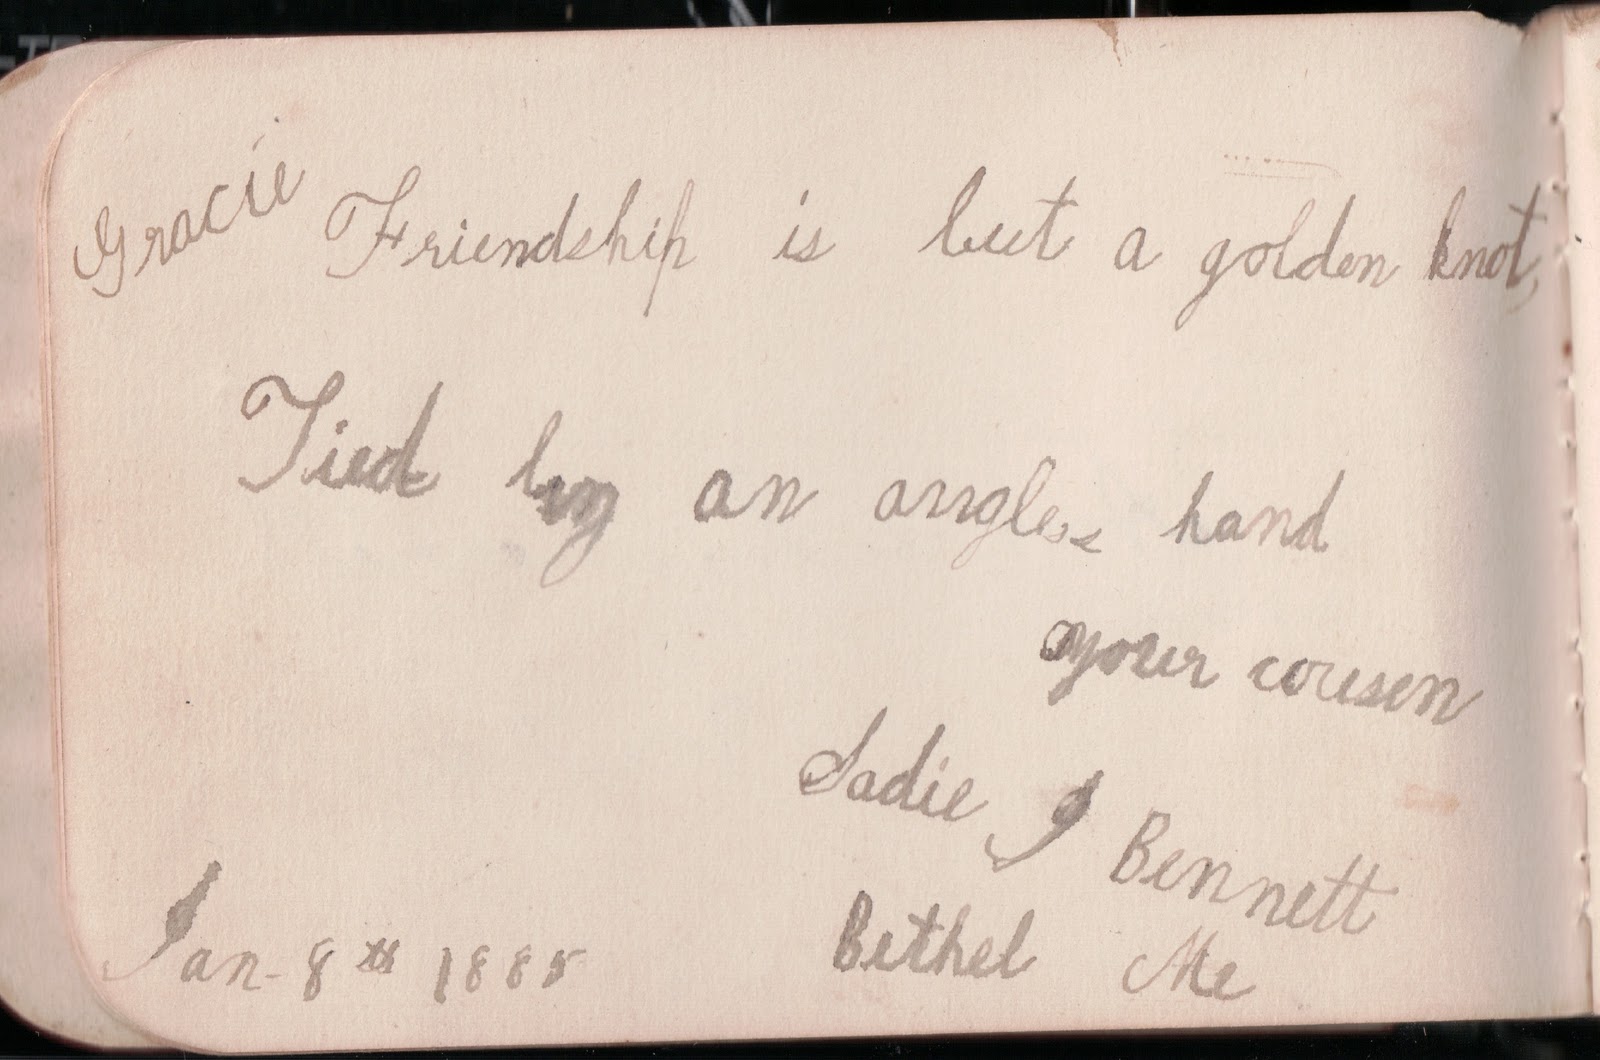 Gracie Friendship is but a golden knot,
Tied by an angles hand
your cousen
Sadie J Bennett
Bethel Me
Jan- 8th 1885